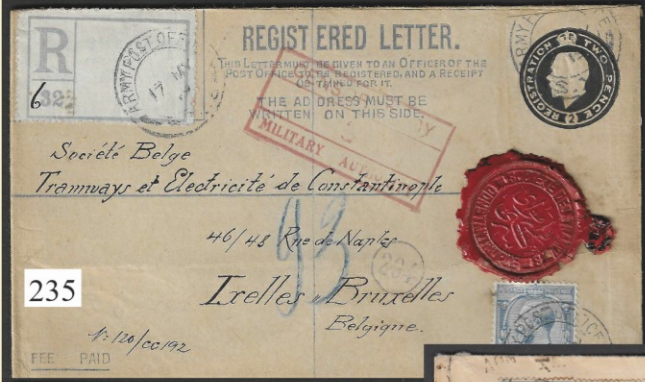 R
ARMY POST OFFICE
17
6
322
REGISTERED LETTER.
THIS LETTER MUST BE GIVEN TO AN OFFICER OF THE
POST OFFICE TO BE REGISTERED, AND A RECEIPT
OBTAINED FOR IT.
THE ADDRESS MUST BE
WRITTEN ON THIS SIDE.
ARMY
REGISTRATION TWO PENCE
(2)
BY
MILITARY
Société Belge
Tramways et Electricité de Constantinople
46/48 Rue de Naples
93
Ixelles Bruxelles
Belgique.
235
Nº 120/CC192
FEE PAID
ARMY POST OFFICE